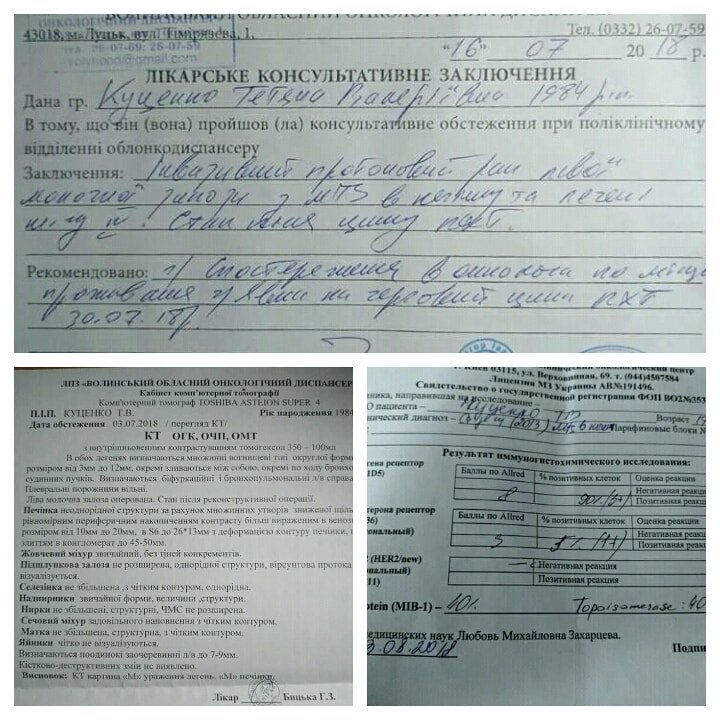 ВОЛИНСЬКИЙ ОБЛАСНИЙ ОНКОЛОГІЧНИЙ ДИСПАНСЕР
43018, м. Луцьк, вул. Тімірязєва, 1,
Тел. (0332) 26-07-59
26-07-69; 26-07-59
"16" 07 2018 р.
ЛІКАРСЬКЕ КОНСУЛЬТАТИВНЕ ЗАКЛЮЧЕННЯ
Дана гр. Куценко Тетяна Валеріївна 1984 р.н.
В тому, що він (вона) пройшов (ла) консультативне обстеження при поліклінічному
відділенні облонкодиспансеру
Заключення: Інвазивний протоковий рак лівої
молочної залози з мтз в легені та печені
Стан після циклу ПХТ.
Рекомендовано: 1) Спостереження в онколога по місцю
проживання 2) Явка на черговий цикл ПХТ
30.07.18р.
ЛПЗ «ВОЛИНСЬКИЙ ОБЛАСНИЙ ОНКОЛОГІЧНИЙ ДИСПАНСЕР
Кабінет комп'ютерної томографії
Комп'ютерний томограф TOSHIBA ASTEION SUPER 4
П.І.П. КУЦЕНКО Т.В. Рік народження 1984
Дата обстеження 03.07.2018 / перегляд КТ/
КТ ОГК, ОЧП, ОМТ
з внутрішньовенним контрастуванням томогексол 350 – 100мл
В обох легенях визначаються множинні вогнищеві тіні округлої форми
розміром від 3мм до 12мм, окремі зливаються між собою, окремі по ходу бронхо
судинних пучків. Визначаються біфуркаційні і бронхопульмональні л/в справа
Плевральні порожнини вільні.
Ліва молочна залоза оперована. Стан після реконструктивної операції.
Печінка неоднорідної структури за рахунок множинних утворів зниженої щіль
рівномірним периферичним накопиченням контрасту більш вираженим в веноз
розміром від 10мм до 20мм, в S6 до 26*13мм з деформацією контуру печінки,
злиттям в конгломерат до 45-50мм.
Жовчевий міхур звичайний, без тіней конкрементів.
Підшлункова залоза не розширена, однорідної структури, вірсунгова протока
візуалізується.
Селезінка не збільшена, з чітким контуром, однорідна.
Наднирники звичайної форми, величини, структури.
Нирки не збільшені, структурні, ЧМС не розширена.
Сечовий міхур задовільного наповнення з чітким контуром.
Матка не збільшена, структурна, з чітким контуром.
Яйники чітко не візуалізуються.
Визначаються поодинокі заочеревинні л/в до 7-9мм.
Кістково-деструктивних змін не виявлено.
Висновок: КТ картина «М» ураження легень. «М» печінки.
Лікар Бицька Г.З.
г. Киев 03115, ул. Верховинная, 69. т. (044)4507584
Лицензия МЗ Украины АВ№191496.
Свидетельство о государственной регистрации ФОП ВО2№353
направившая на исследование
О пациента – Куценко Т.В. Возраст
нический диагноз – (2013) Парафиновые блоки №
Результат иммуногистохимического исследования:
рецептор
1D5)
Баллы по Allred % позитивных клеток Оценка реакции
8 90% (3+) Негативная реакция
Позитивная реакция
рецептор
Баллы по Allred % позитивных клеток Оценка реакции
3 5% (1+) Негативная реакция
Позитивная реакция
(HER2/new)
Негативная реакция
Позитивная реакция
rotein (MIB-1) – 40% Topoisomerase: 40
медицинских наук Любовь Михайловна Захарцева.
3.08.2018 Подпи